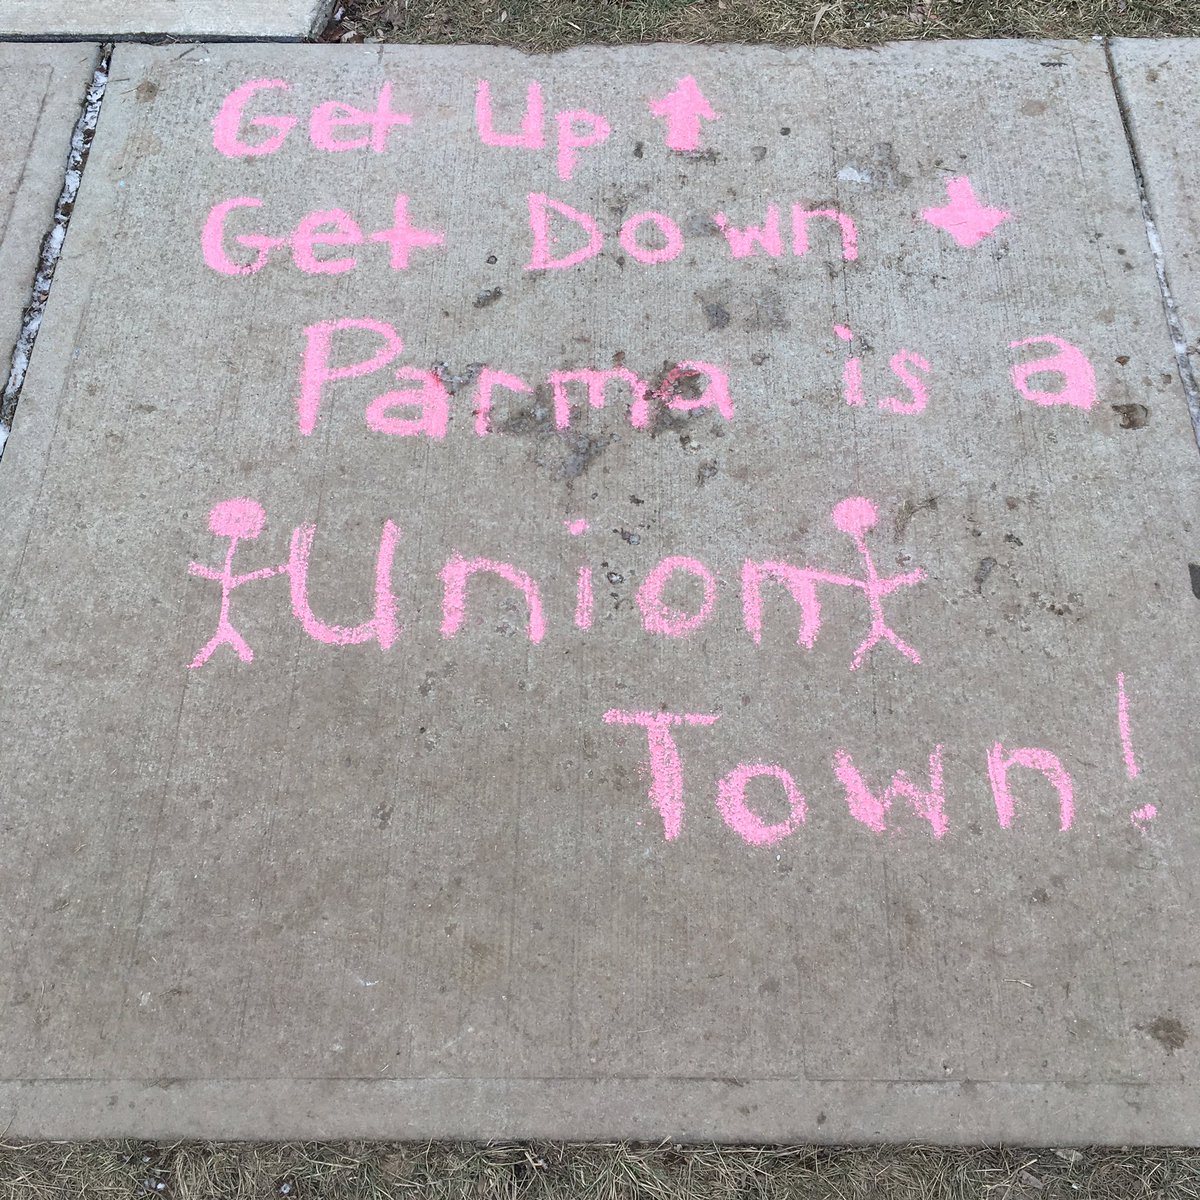 Get Up ↑
Get Down ↓
Parma is a
Union
Town!